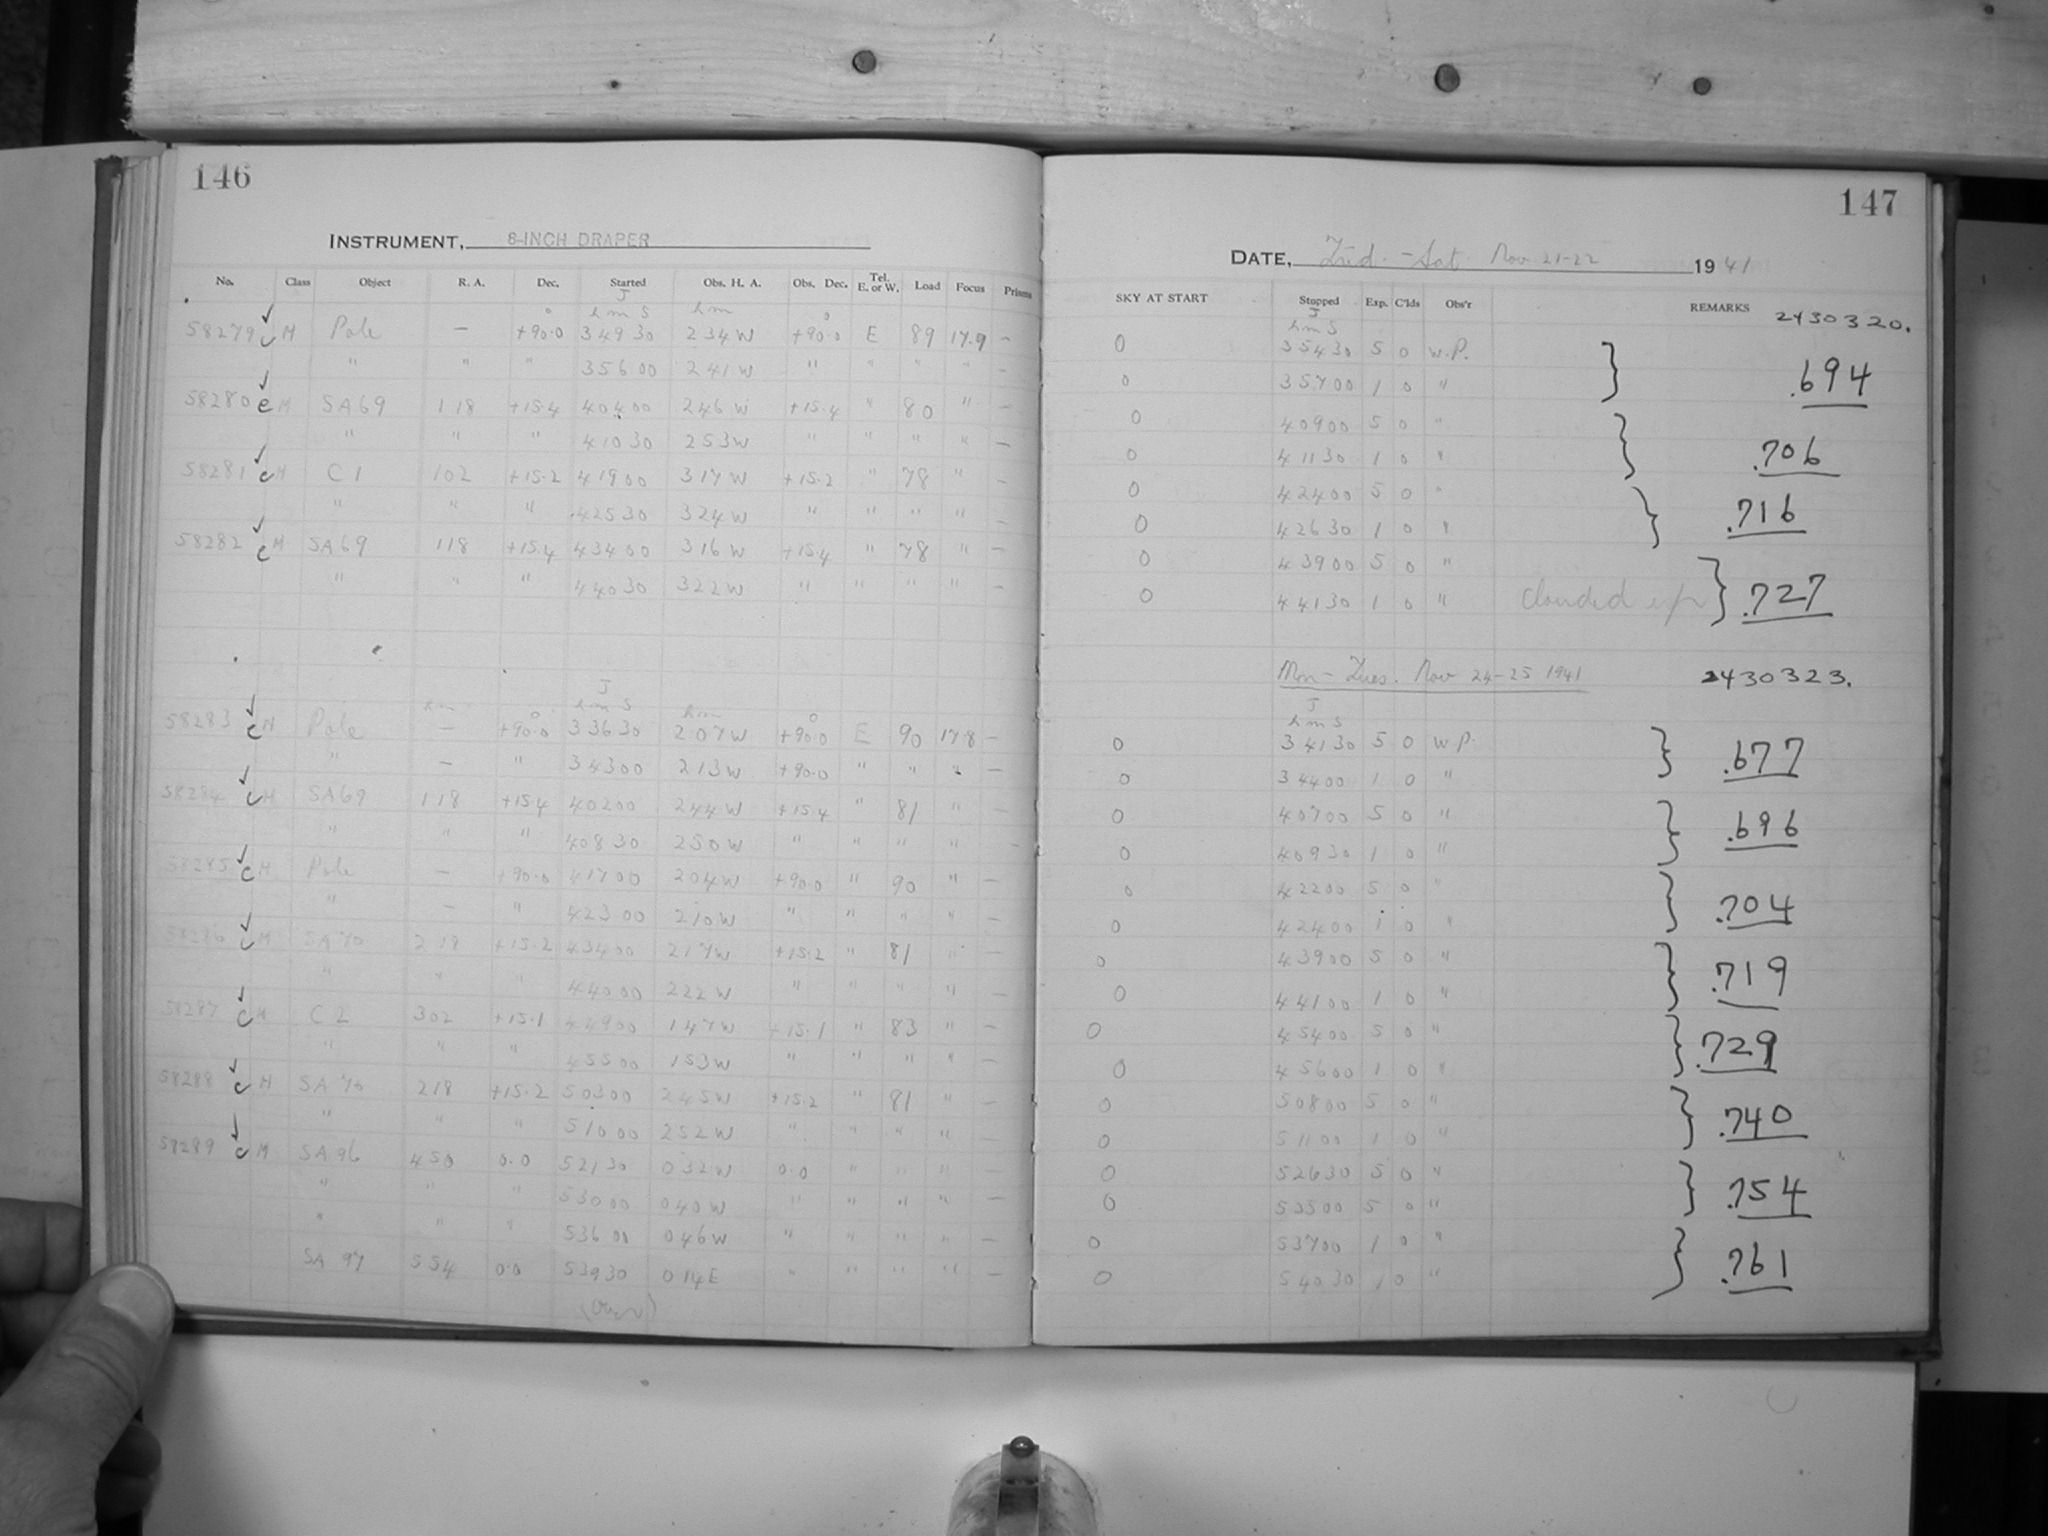 146
INSTRUMENT, 8-INCH DRAPER
No. Class Object R. A. Dec. Started Obs. H. A. Obs. Dec. Tel. E. or W. Load Focus Prisms
J
° h m S h m °
58279 c H Pole — +90.0 3 49 30 2 34 W +90.0 E 89 17.9 —
" " " 3 56 00 2 41 W " " " " —
58280 c H SA69 1 18 +15.4 4 04 00 2 46 W +15.4 " 80 " —
" " " 4 10 30 2 53 W " " " " —
58281 c H C 1 1 02 +15.2 4 19 00 3 17 W +15.2 " 78 " —
" " " 4 25 30 3 24 W " " " " —
58282 c H SA69 1 18 +15.4 4 34 00 3 16 W +15.4 " 78 " —
" " " 4 40 30 3 22 W " " " " —
J
h m ° h m S h m °
58283 c H Pole — +90.0 3 36 30 2 07 W +90.0 E 90 17.8 —
" — " 3 43 00 2 13 W +90.0 " " " —
58284 c H SA69 1 18 +15.4 4 02 00 2 44 W +15.4 " 81 " —
" " " 4 08 30 2 50 W " " " " —
58285 c H Pole — +90.0 4 17 00 2 04 W +90.0 " 90 " —
" — " 4 23 00 2 10 W " " " " —
58286 c H SA70 2 18 +15.2 4 34 00 2 17 W +15.2 " 81 " —
" " " 4 40 00 2 22 W " " " " —
58287 c H C 2 3 02 +15.1 4 49 00 1 47 W +15.1 " 83 " —
" " " 4 55 00 1 53 W " " " " —
58288 c H SA 70 2 18 +15.2 5 03 00 2 45 W +15.2 " 81 " —
" " " 5 10 00 2 52 W " " " " —
58289 c H SA 96 4 50 0.0 5 21 30 0 32 W 0.0 " " " —
" " " 5 30 00 0 40 W " " " " —
" " " 5 36 00 0 46 W " " " " —
SA 97 5 54 0.0 5 39 30 0 14 E " " " " —
(Over)
147
DATE, Frid. - Sat. Nov 21-22 1941
SKY AT START Stopped Exp. C'lds Obs'r REMARKS
J
h m S 2430320.
0 3 54 30 5 0 W.P.
0 3 57 00 1 0 " .694
0 4 09 00 5 0 "
0 4 11 30 1 0 " .706
0 4 24 00 5 0 "
0 4 26 30 1 0 " .716
0 4 39 00 5 0 "
0 4 41 30 1 0 " Clouded up .727
Mon - Tues. Nov 24-25 1941 2430323.
J
h m S
0 3 41 30 5 0 W.P.
0 3 44 00 1 0 " .677
0 4 07 00 5 0 "
0 4 09 30 1 0 " .696
0 4 22 00 5 0 "
0 4 24 00 1 0 " .704
0 4 39 00 5 0 "
0 4 41 00 1 0 " .719
0 4 54 00 5 0 "
0 4 56 00 1 0 " .729
0 5 08 00 5 0 "
0 5 11 00 1 0 " .740
0 5 26 30 5 0 "
0 5 35 00 5 0 " .754
0 5 37 00 1 0 "
0 5 40 30 1 0 " .761